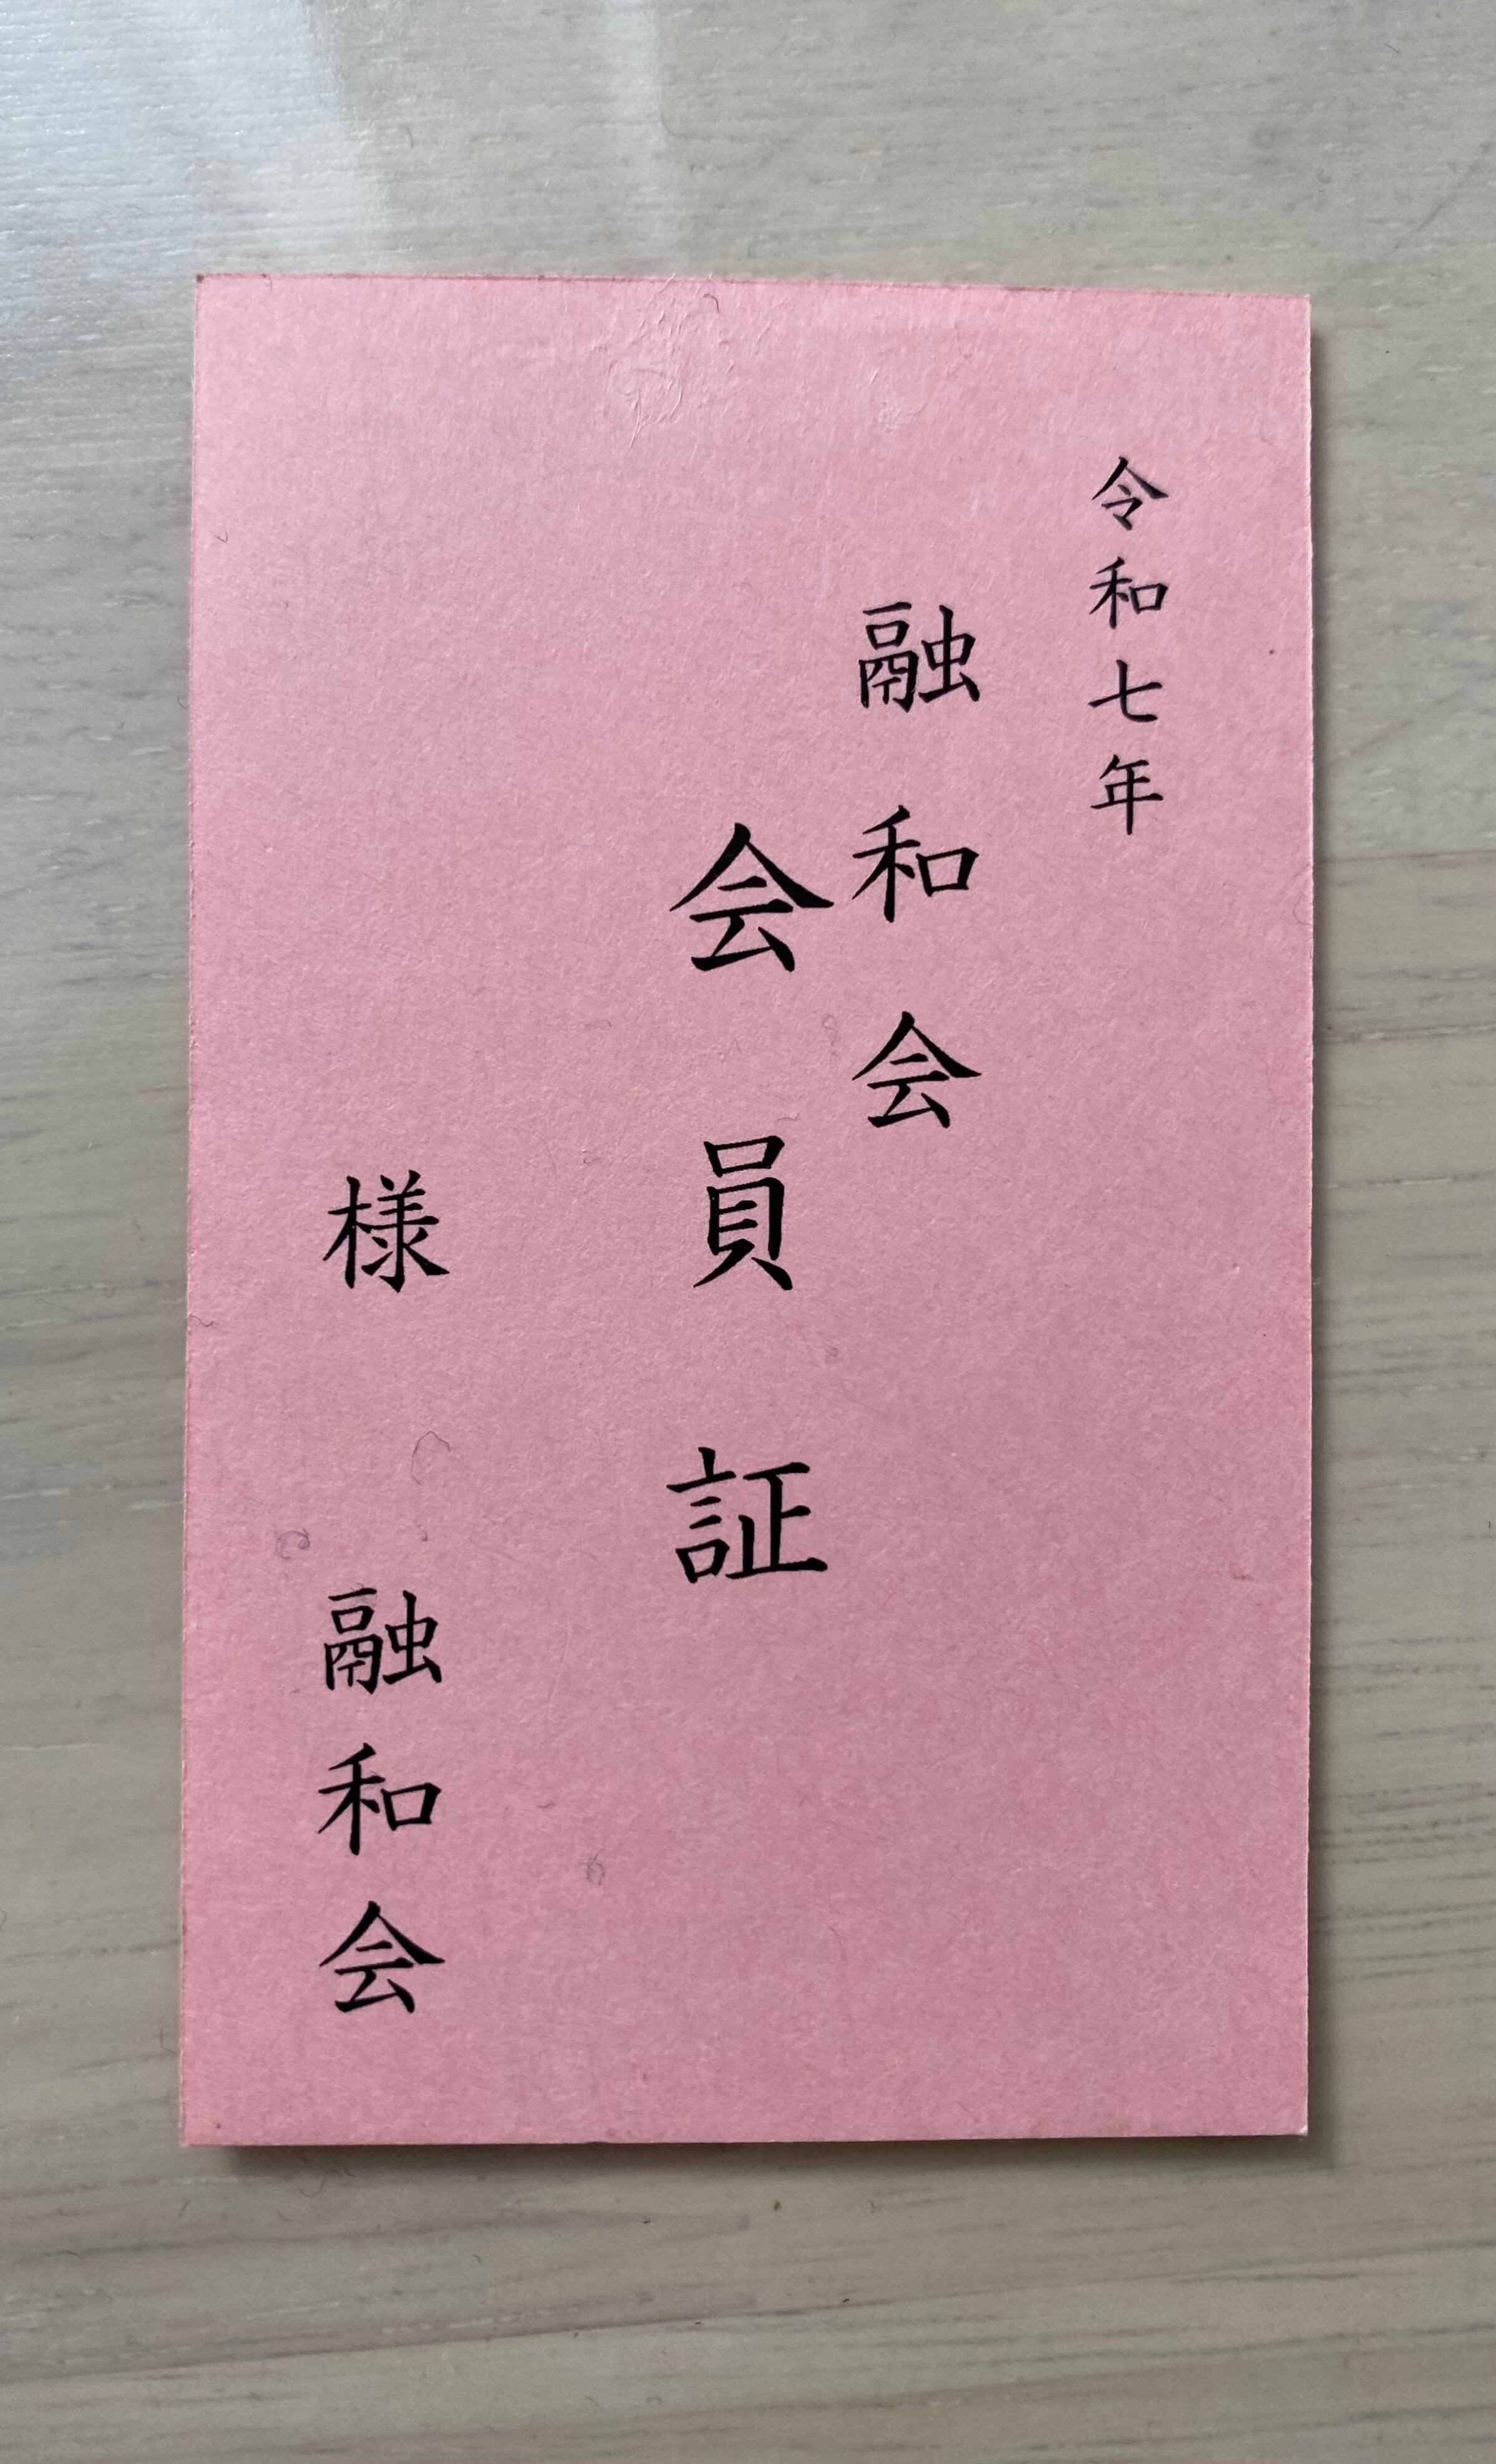 令和七年
融和会
会員証
様
融和会